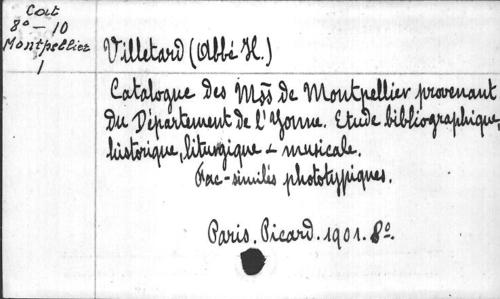 Cat
8º - 10
Montpellier
1
Villetard (Abbé H.)
Catalogue des Mss de Montpellier provenant
du Département de l'Yonne. Etude bibliographique,
historique, liturgique & musicale.
Fac-similés phototypiques.
Paris. Picard. 1901. 8º.